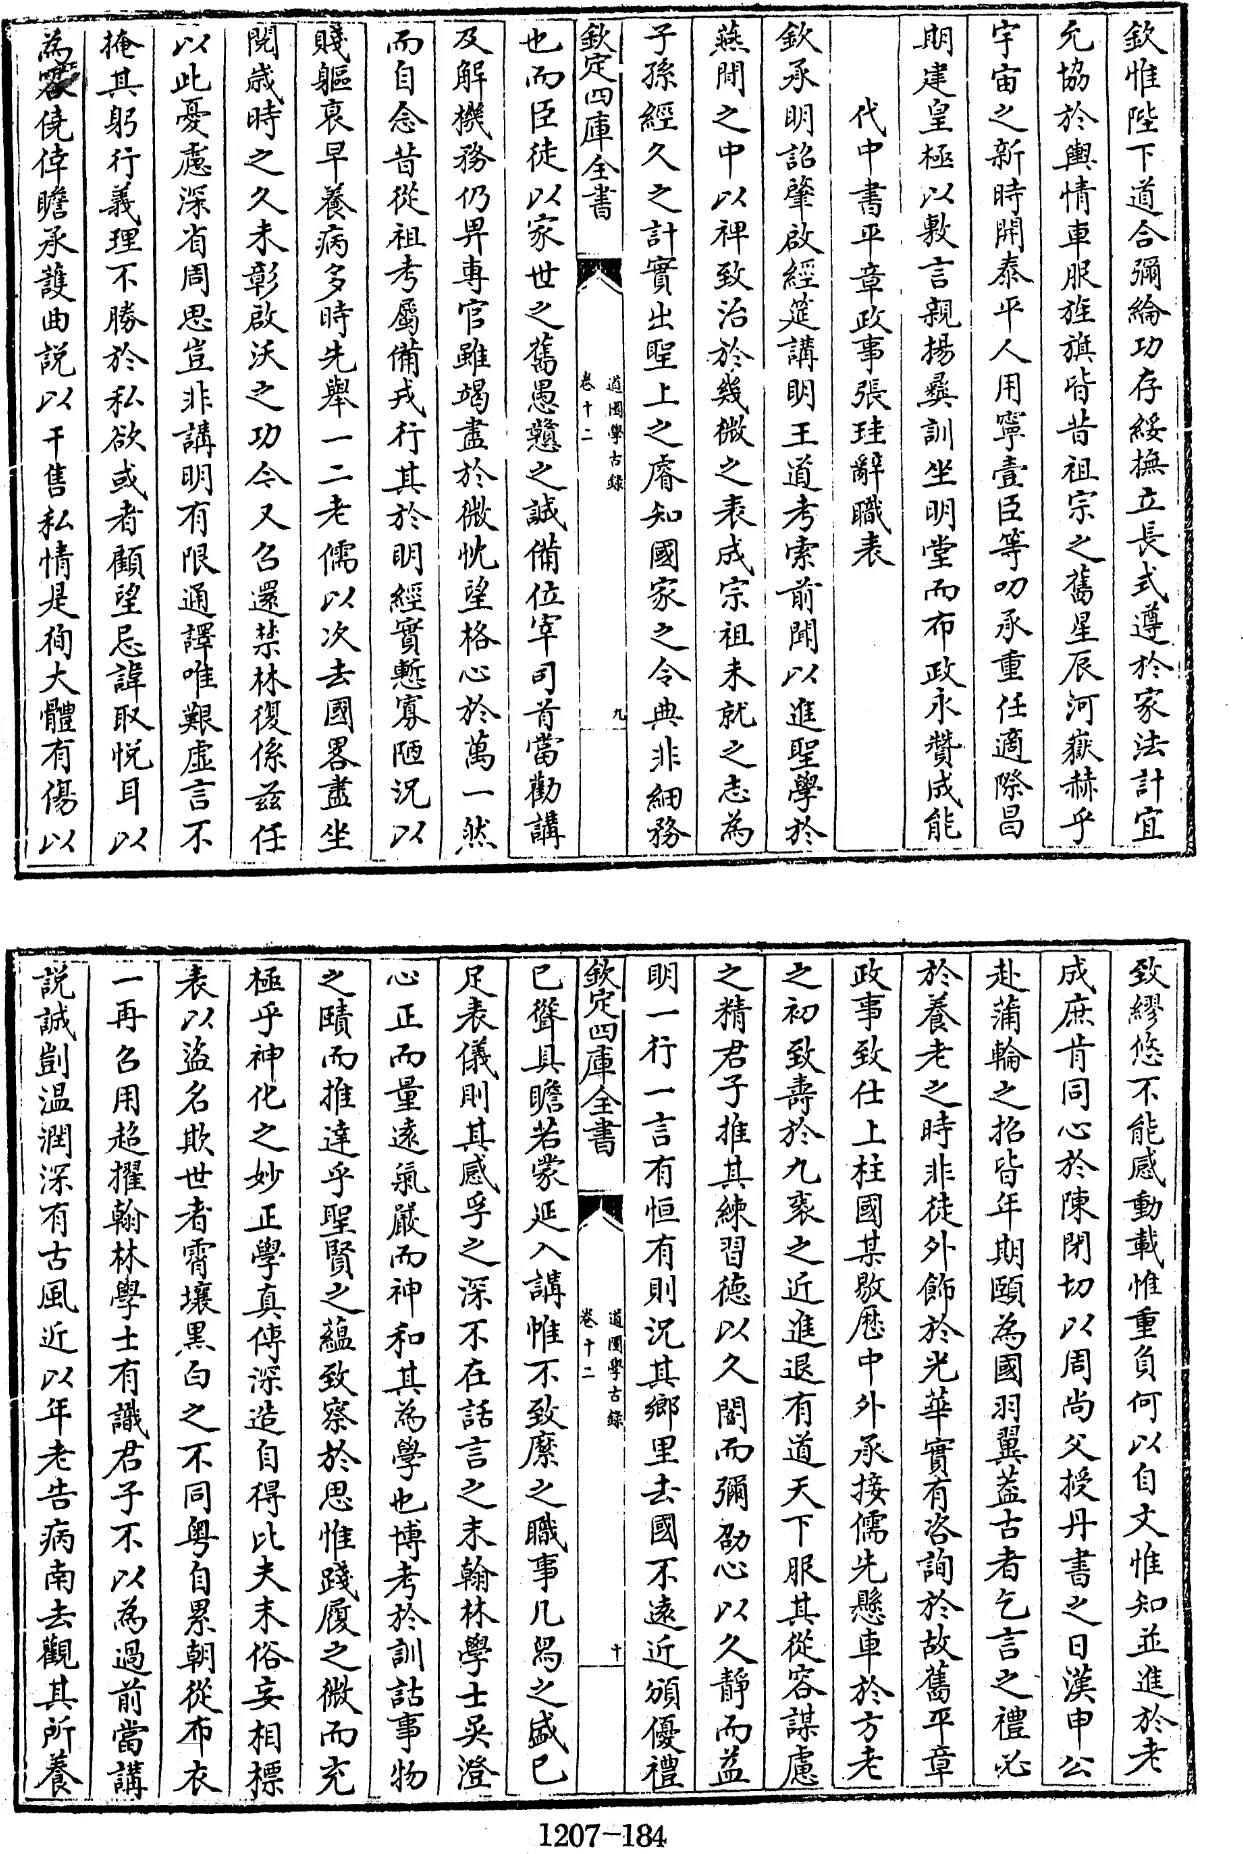 欽惟陛下道合彌綸功存綏撫立長式遵於家法計宜
允協於輿情車服旌旗皆昔祖宗之舊星辰河嶽赫乎
宇宙之新時開泰平人用寧壹臣等叨承重任適際昌
期建皇極以敷言親揚彝訓坐明堂而布政永贊成能
代中書平章政事張珪辭職表
欽承明詔肇啟經筵講明王道考索前聞以進聖學於
燕閒之中以裨致治於幾微之表成宗祖未就之志為
子孫經久之計實出聖上之睿知國家之令典非細務
欽定四庫全書
道園學古錄
卷十二
九
也而臣徒以家世之舊愚戇之誠備位宰司首當勸講
及解機務仍畀專官雖竭盡於微忱望格心於萬一然
而自念昔從祖考屬備戎行其於明經實慙寡陋況以
賤軀衰早養病多時先舉一二老儒以次去國畧盡坐
閱歲時之久未彰啟沃之功今又召還禁林復係兹任
以此憂慮深省周思豈非講明有限通譯唯艱虛言不
掩其躬行義理不勝於私欲或者顧望忌諱取悅耳以
為容僥倖瞻承護曲說以干售私情是徇大體有傷以
致繆悠不能感動載惟重負何以自文惟知並進於老
成庶肯同心於陳閉切以周尚父授丹書之日漢申公
赴蒲輪之招皆年期頤為國羽翼葢古者乞言之禮必
於養老之時非徒外飾於光華實有咨詢於故舊平章
政事致仕上柱國某敭歷中外承接儒先懸車於方老
之初致壽於九袠之近進退有道天下服其從容謀慮
之精君子推其練習德以久閱而彌劭心以久靜而益
明一行一言有恒有則況其鄉里去國不遠近頒優禮
欽定四庫全書
道園學古錄
卷十二
十
已聳具瞻若蒙延入講帷不致縻之職事几舄之盛已
足表儀則其感孚之深不在話言之末翰林學士吳澄
心正而量遠氣嚴而神和其為學也博考於訓詁事物
之賾而推達乎聖賢之蘊致察於思惟踐履之微而充
極乎神化之妙正學真傳深造自得比夫末俗妄相標
表以盜名欺世者霄壤黑白之不同粤自累朝從布衣
一再召用超擢翰林學士有識君子不以為過前當講
說誠剴温潤深有古風近以年老告病南去觀其所養
1207-184